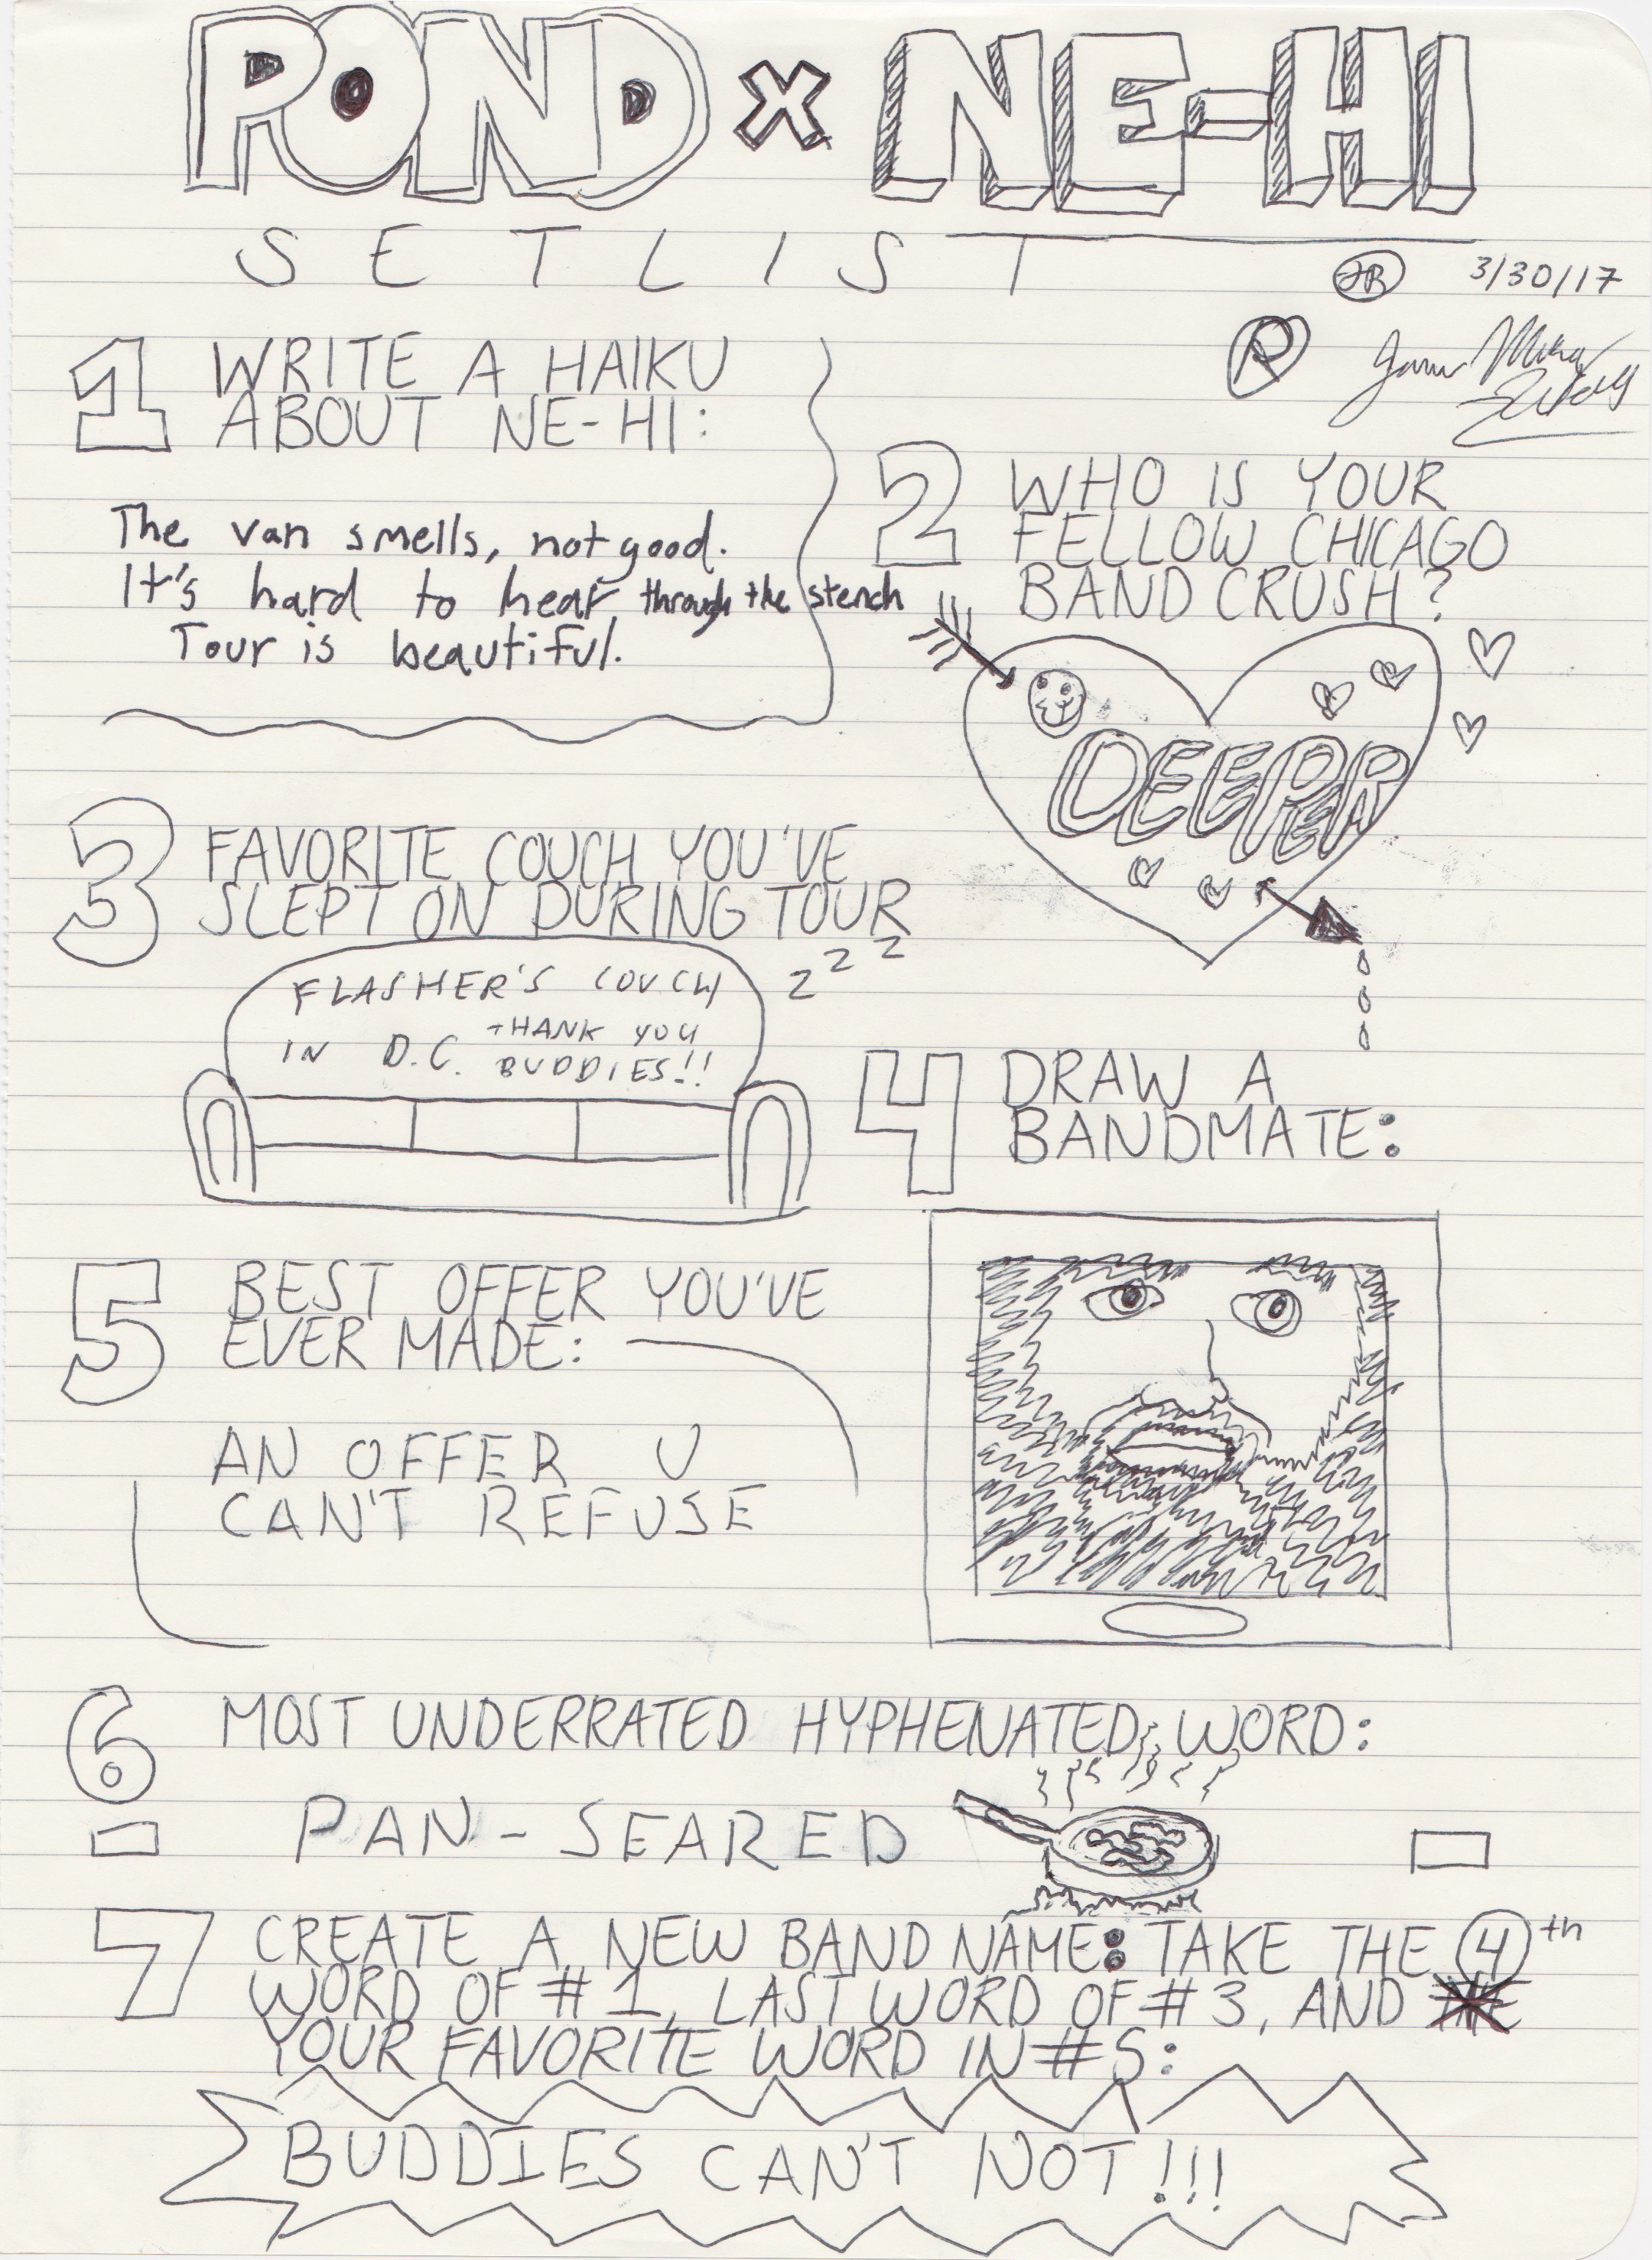 POND X NE-HI
SETLIST
JR 3/30/17
R
1 WRITE A HAIKU
ABOUT NE-HI:
The van smells, not good.
It's hard to hear through the stench
Tour is beautiful.
2 WHO IS YOUR
FELLOW CHICAGO
BAND CRUSH?
DEEPER
3 FAVORITE COUCH YOU'VE
SLEPT ON DURING TOUR
z z z
FLASHER'S COUCH
IN D.C. THANK YOU
BUDDIES!!
4 DRAW A
BANDMATE:
5 BEST OFFER YOU'VE
EVER MADE:
AN OFFER U
CAN'T REFUSE
6 MOST UNDERRATED HYPHENATED WORD:
PAN-SEARED
7 CREATE A NEW BAND NAME: TAKE THE 4th
WORD OF #1, LAST WORD OF #3, AND
YOUR FAVORITE WORD IN #5:
BUDDIES CAN'T NOT!!!